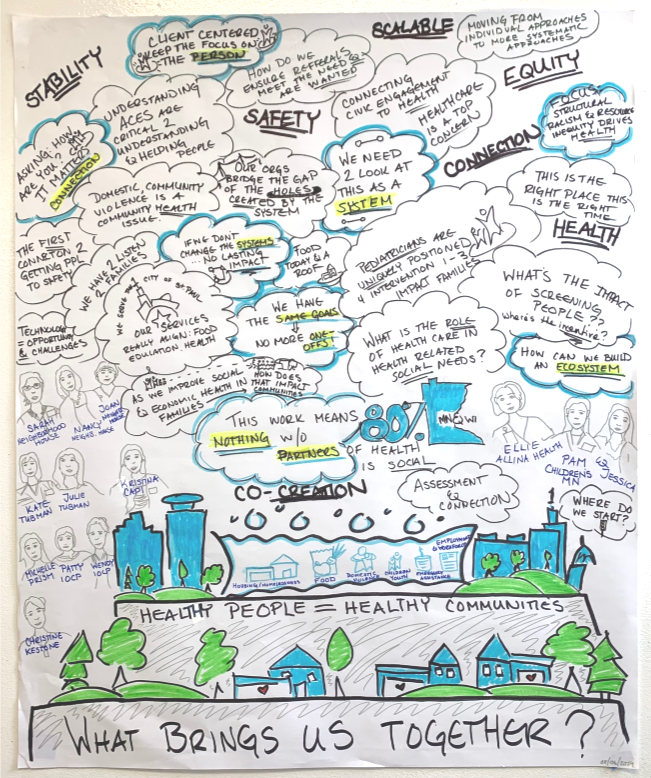 STABILITY
CLIENT CENTERED
KEEP THE FOCUS ON
THE PERSON
SCALABLE
MOVING FROM
INDIVIDUAL APPROACHES
TO MORE SYSTEMATIC
APPROACHES
HOW DO WE
ENSURE REFERRALS
MEET THE NEED &
ARE WANTED
EQUITY
UNDERSTANDING
ACES ARE
CRITICAL 2
UNDERSTANDING
& HELPING PEOPLE
SAFETY
CONNECTING
CIVIC ENGAGEMENT
TO HEALTH
HEALTHCARE
IS A TOP
CONCERN
FOCUS:
STRUCTURAL
RACISM & RESOURCE
INEQUITY DRIVES
HEALTH
ASKING: HOW
ARE YOU?
IT MATTERS
CONNECTION
OUR ORGS
BRIDGE THE GAP
OF THE HOLES
CREATED BY THE
SYSTEM
WE NEED
2 LOOK AT
THIS AS A
SYSTEM
CONNECTION
THIS IS THE
RIGHT PLACE THIS
IS THE RIGHT
TIME
DOMESTIC, COMMUNITY
VIOLENCE IS A
COMMUNITY HEALTH
ISSUE.
HEALTH
THE FIRST
CONNXTION 2
GETTING PPL
TO SAFETY
WE HAVE 2 LISTEN
2 FAMILIES
IF WE DON'T
CHANGE THE SYSTEMS
NO LASTING
IMPACT
FOOD
TODAY & A
ROOF
PEDIATRICIANS ARE
UNIQUELY POSITIONED
4 INTERVENTION 1-3
IMPACT FAMILIES
WHAT'S THE IMPACT
OF SCREENING
PEOPLE??
where's the incentive?
WE SERVE THE CITY OF ST. PAUL
OUR SERVICES
REALLY ALIGN: FOOD
EDUCATION, HEALTH
WE HAVE
THE SAME GOALS
NO MORE ONE-
OFFS!
TECHNOLOGY
= OPPORTUNITY
& CHALLENGES
WHAT IS THE ROLE
OF HEALTH CARE IN
HEALTH RELATED
SOCIAL NEEDS?
HOW CAN WE BUILD
AN ECOSYSTEM
AS WE IMPROVE SOCIAL
& ECONOMIC HEALTH IN
FAMILIES
HOW DOES
THAT IMPACT
COMMUNITIES
THIS WORK MEANS
NOTHING W/O
PARTNERS
80%
OF HEALTH
IS SOCIAL
MN WI
SARAH
NEIGHBORHOOD
HOUSE
NANCY
NEIGHB. HOUSE
JOAN
ELLIE
ALLINA HEALTH
PAM &
CHILDRENS
MN
JESSICA
KATE
TUBMAN
JULIE
TUBMAN
KRISTINA
CAPI
CO-CREATION
ASSESSMENT
&
CONNECTION
WHERE DO
WE START?
MICHELLE
PRISM
PATTY
IOCP
WENDY
IOCP
HOUSING/HOMELESSNESS
FOOD
DOMESTIC
VIOLENCE
CHILDREN
YOUTH
EMERGENCY
ASSISTANCE
EMPLOYMENT
& WORKFORCE
CHRISTINE
KEYSTONE
HEALTHY PEOPLE = HEALTHY COMMUNITIES
WHAT BRINGS US TOGETHER?